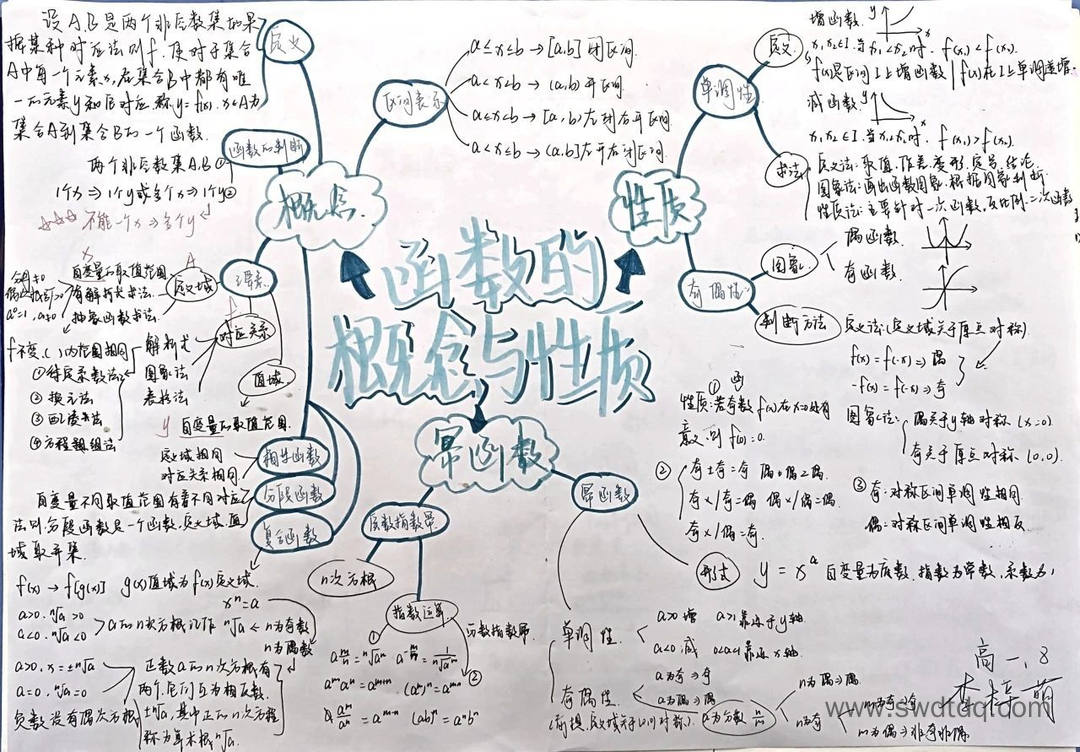 函数的
概念与性质
概念
定义
设A,B是两个非空数集如果
据某种对应法则f,使对于集合
A中每一个元素x,在集合B中都有唯
一的元素y和它对应,称y=f(x),x∈A为
集合A到集合B的一个函数.
函数的判断
两个非空数集A.B ①
1个x⇒1个y或多个x⇒1个y②
☆☆☆ 不能一个x⇒多个y
区间表示
a≤x≤b→[a,b]闭区间.
a<x<b→(a,b)开区间
a≤x<b→[a,b)左闭右开区间
a<x≤b→(a,b]左开右闭区间.
三要素
定义域
自变量的取值范围
有解析式求法
抽象函数求法
f不变,( )内范围相同
对应关系
解析式
图象法
表格法
①待定系数法
②换元法
③配凑法
④方程组法
值域
y 自变量的取值范围.
相等函数
定义域相同
对应关系相同
分段函数
自变量不同取值范围有着不同对应
法则,分段函数是一个函数.定义域,值
域取并集.
复合函数
f(x)→f[g(x)] g(x)值域为f(x)定义域.
性质
单调性
定义
增函数.
x₁,x₂∈I.当x₁<x₂时. f(x₁)<f(x₂).
f(x)是区间I上增函数/f(x)在I上单调递增.
减函数
x₁,x₂∈I.当x₁<x₂时. f(x₁)>f(x₂).
求法
定义法:取值.作差.变形.定号.结论.
图象法:画出函数图象.根据图象判断.
性质法:主要针对一次函数,反比例.二次函数
奇偶性
图象
偶函数.
奇函数.
判断方法
定义法:(定义域关于原点对称).
f(x)=f(-x)⇒偶
-f(x)=f(-x)⇒奇
图象法: 偶关于y轴对称 (x=0).
奇关于原点对称. (0,0).
① 函
性质:若奇数f(x)在x=0处有
意义.则f(0)=0.
② 奇±奇=奇 偶±偶=偶.
奇×/奇=偶 偶×/偶=偶.
奇×/偶=奇.
③ 奇:对称区间单调性相同
偶:对称区间单调性相反.
幂函数
实数指数幂
n次方根
xⁿ=a
a的n次方根记作ⁿ√a ← n为奇数
n为偶数
a>0.ⁿ√a>0
a<0.ⁿ√a<0
a>0,x=±ⁿ√a
a=0,ⁿ√a=0
负数没有偶次方根
正数a的n次方根有
两个,它们互为相反数.
±ⁿ√a,其中正的n次方根
称为算术根ⁿ√a.
指数运算
实数指数幂
幂函数
形式 y=xᵃ 自变量为底数,指数为常数,系数为1
单调性
a>0 增 a>1 靠近于y轴
a<0 减 0<a<1 靠近x轴
奇偶性
(前提.定义域关于(0,0)对称).
a为奇⇒奇
a为偶⇒偶
a为分数
n为偶⇒偶
n为奇
m为奇⇒奇
m为偶⇒非奇非偶
高一.8
www.swdtdqt.com